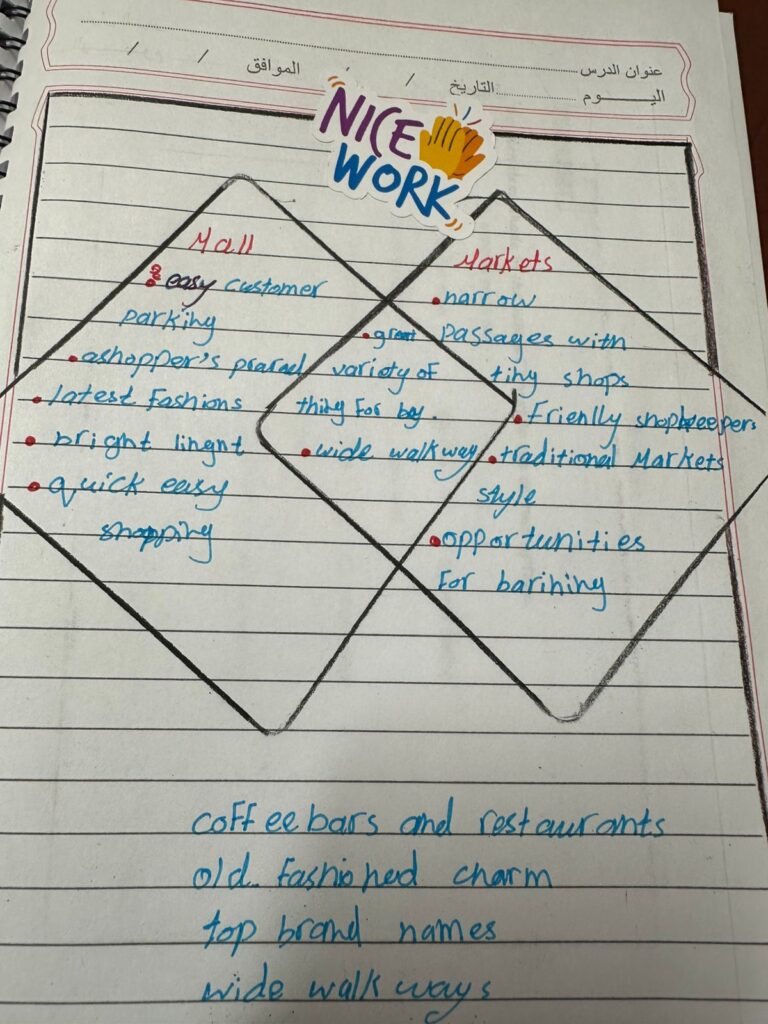 عنوان الدرس
اليـــــوم التاريخ / / الموافق / /
NICE
WORK
Mall
easy customer
parking
ashopper's praradl
latest fashions
bright lingnt
quick easy
shopping
great
variety of
thing for bey.
wide walkway
Markets
narrow
passages with
tiny shops
Frienlly shopkeepers
traditional Markets
style
opportunities
For barihihy
coffeebars and restaurants
old. fashiohed charm
top brand names
wide walk ways